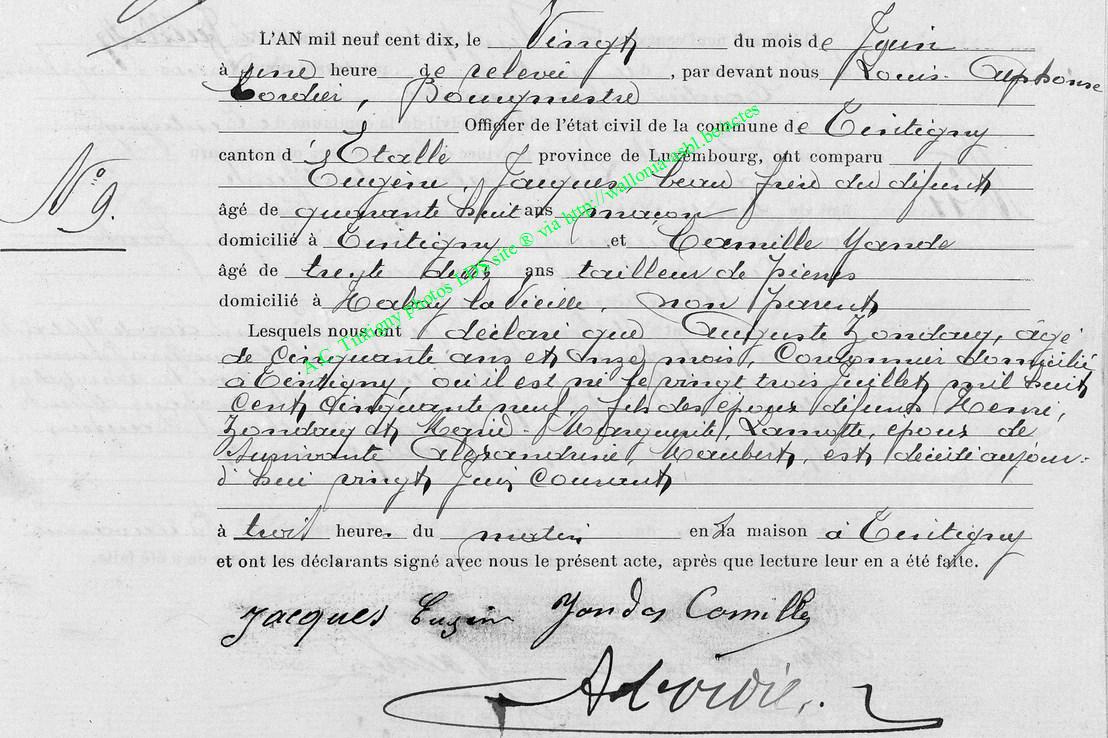 L'AN mil neuf cent dix, le Vingt du mois de Juin
à une heure de relevée, par devant nous Louis Alphonse
Cordier, Bourgmestre
Officier de l'état civil de la commune de Tintigny
canton d'Etalle province de Luxembourg, ont comparu
Eugène Jacques, beau frère du défunt
N° 9.
âgé de quarante huit ans maçon
domicilié à Tintigny et Camille Yande
âgé de trente deux ans tailleur de pierres
domicilié à Habay la Vieille, non parent
Lesquels nous ont déclaré que Auguste, âgé
de cinquante ans et onze mois, Cordonnier domicilié
à Tintigny où il est né le vingt trois Juillet mil huit
cent cinquante neuf, fils des époux défunts Henri,
et Marie Marguerite Lamotte, époux de
Survivante Alexandrine Maubert, est décédé aujour-
d'hui vingt Juin Courant
à trois heures du matin en sa maison à Tintigny
et ont les déclarants signé avec nous le présent acte, après que lecture leur en a été faite.
Jacques Eugène Yande Camille
ACordier.
A.C. Tintigny photos LDS site ® via http://wallonia-asbl.be/actes